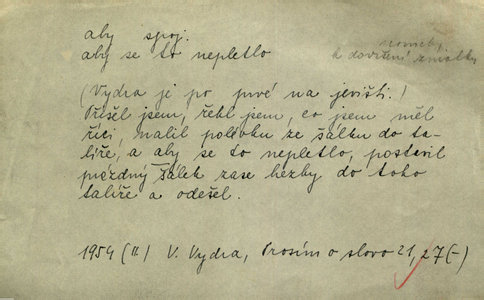 aby spoj.
aby se to nepletlo
k dovršení zmatku
(Vydra je po prvé na jevišti.)
Přišel jsem, řekl jsem, co jsem měl
říci, nalil polévku ze šálku do ta-
líře, a aby se to nepletlo, postavil
prázdný šálek zase hezky do toho
talíře a odešel.
1954 (11) V. Vydra, Prosím o slovo 21, 27 (-)